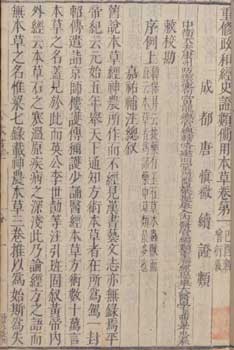 重修政和經史證類備用本草卷第一
成都唐慎微續證類
敕校勘
序例上
嘉祐補注總叙
舊說本草經神農所作而不經見漢書藝文志亦無錄焉平
帝紀云元始五年舉天下通知方術本草者在所爲駕一封
軺傳遣詣京師樓護傳稱護少誦醫經本草方術數十萬言
本草之名蓋見於此而英公李世勣等注引班固叙黃帝內
外經云本草石之寒溫原疾病之深淺此乃論經方之語而
無本草之名惟梁七錄載神農本草三卷推以爲始斯爲失